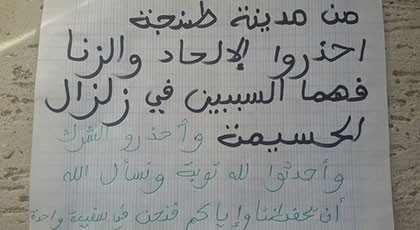 من مدينة طنجة
احذروا الإلحاد والزنا
فهما السببين في زلزال
الحسيمة وأحذرو الشرك
وأحدثوا لله توبة ونسأل الله
أن يحفظنا وإياكم فنحن في سفينة واحدة